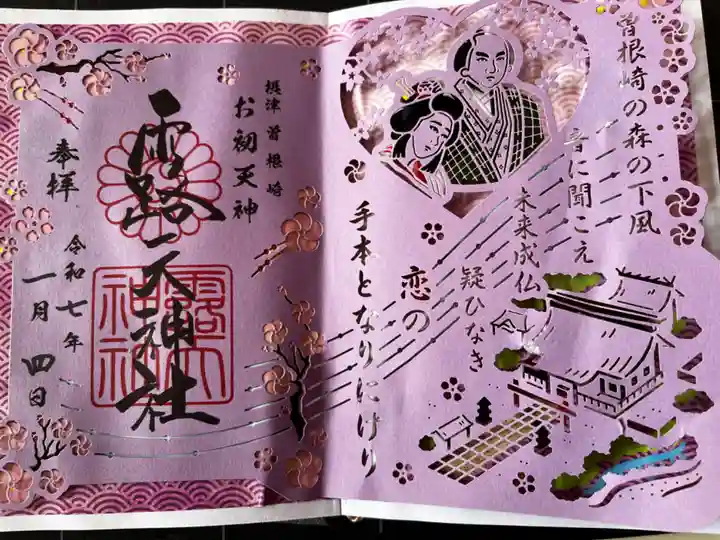 曽根崎の森の下風
音に聞こえ
未来成仏
疑ひなき
恋の
手本となりにけり
摂津 曽根崎
お初天神
露天神社
奉拝
令和七年
一月四日